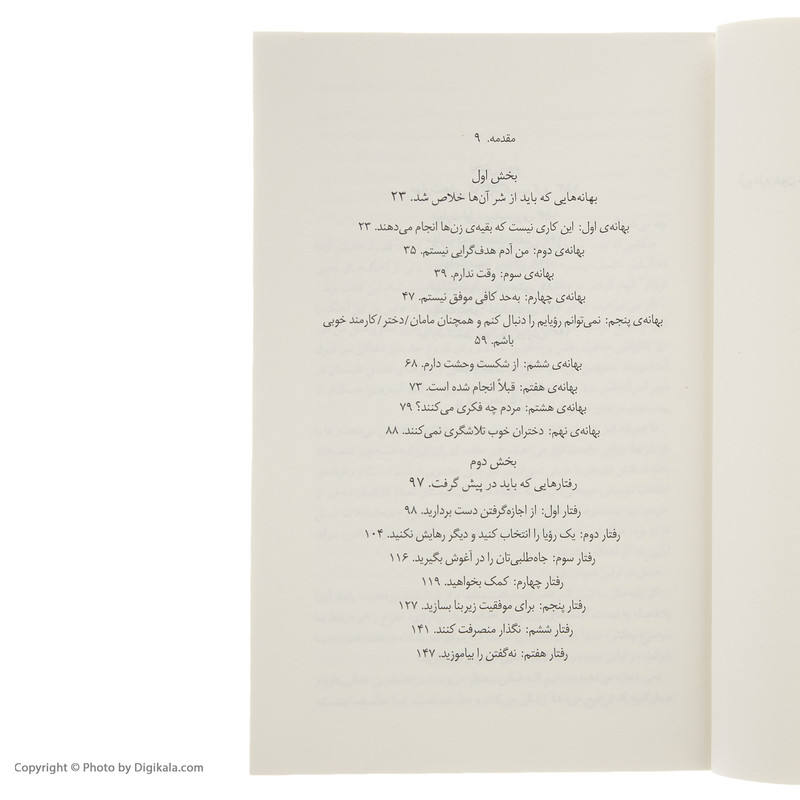 مقدمه. ۹
بخش اول
بهانه‌هایی که باید از شر آن‌ها خلاص شد. ۲۳
بهانه‌ی اول: این کاری نیست که بقیه‌ی زن‌ها انجام می‌دهند. ۲۳
بهانه‌ی دوم: من آدم هدف‌گرایی نیستم. ۳۵
بهانه‌ی سوم: وقت ندارم. ۳۹
بهانه‌ی چهارم: به‌حد کافی موفق نیستم. ۴۷
بهانه‌ی پنجم: نمی‌توانم رؤیایم را دنبال کنم و همچنان مامان/دختر/کارمند خوبی
باشم. ۵۹
بهانه‌ی ششم: از شکست وحشت دارم. ۶۸
بهانه‌ی هفتم: قبلاً انجام شده است. ۷۳
بهانه‌ی هشتم: مردم چه فکری می‌کنند؟ ۷۹
بهانه‌ی نهم: دختران خوب تلاشگری نمی‌کنند. ۸۸
بخش دوم
رفتارهایی که باید در پیش گرفت. ۹۷
رفتار اول: از اجازه‌گرفتن دست بردارید. ۹۸
رفتار دوم: یک رؤیا را انتخاب کنید و دیگر رهایش نکنید. ۱۰۴
رفتار سوم: جاه‌طلبی‌تان را در آغوش بگیرید. ۱۱۶
رفتار چهارم: کمک بخواهید. ۱۱۹
رفتار پنجم: برای موفقیت زیربنا بسازید. ۱۲۷
رفتار ششم: نگذار منصرفت کنند. ۱۴۱
رفتار هفتم: نه‌گفتن را بیاموزید. ۱۴۷
Copyright © Photo by Digikala.com